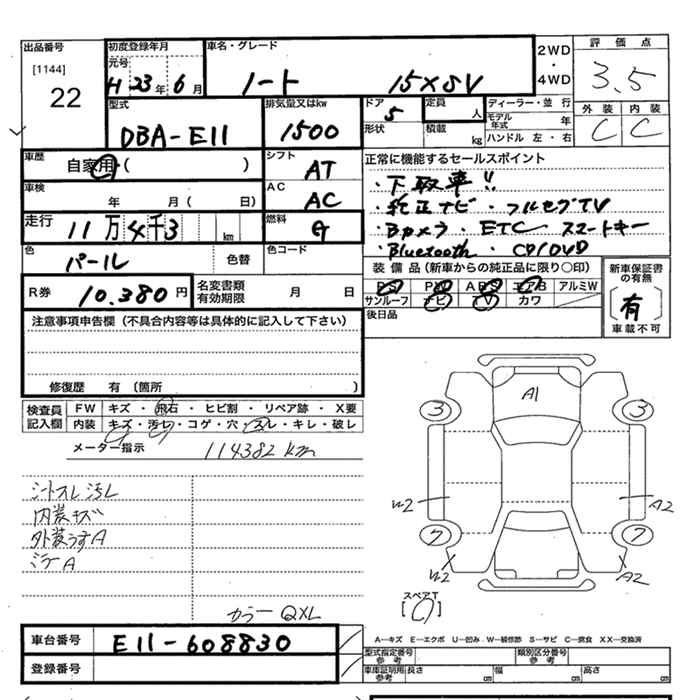 出品番号 初度登録年月 車名・グレード 2WD 評価点
[1144] 元号 ・
22 H 23年 6月 ノート 15×SV 4WD 3.5
型式 排気量又はkw ドア 定員 ディーラー・並行 外装 内装
DBA-E11 1500 5 人 モデル年式 年 C C
形状 積載 kg ハンドル 左・右
車歴 シフト 正常に機能するセールスポイント
自家用( ) AT ・下取車!!
車検 AC ・純正ナビ・フルセグTV
年 月( 日) AC ・Bカメラ・ETC スマートキー
走行 11万4千3 km 燃料 G ・Bluetooth・CD/DVD
色 色替 色コード 装備品(新車からの純正品に限り○印) 新車保証書の有無
パール PS PW ABS エアB アルミW
R券 10.380円 名変書類有効期限 月 日 サンルーフ ナビ TV カワ 〔有〕
後日品 車載不可
注意事項申告欄(不具合内容等は具体的に記入して下さい)
修復歴 有(箇所 )
検査員記入欄 FW キズ・飛石・ヒビ割・リペア跡・X要
内装 キズ・汚レ・コゲ・穴・スレ・キレ・破レ
メーター指示 114382 km
シートスレ汚レ
内装キズ
外装うすA
ミラーA
カラー QXL
A1
3 3
W2 A2
7 7
W2 A2
スペアT
[ ]
A―キズ E―エクボ U―凹み W―補修跡 S―サビ C―腐食 XX―交換済
車台番号 E11-608830 型式指定番号 参考 類別区分番号 参考
登録番号 車庫証明用 参考 長さ cm 幅 cm 高さ cm